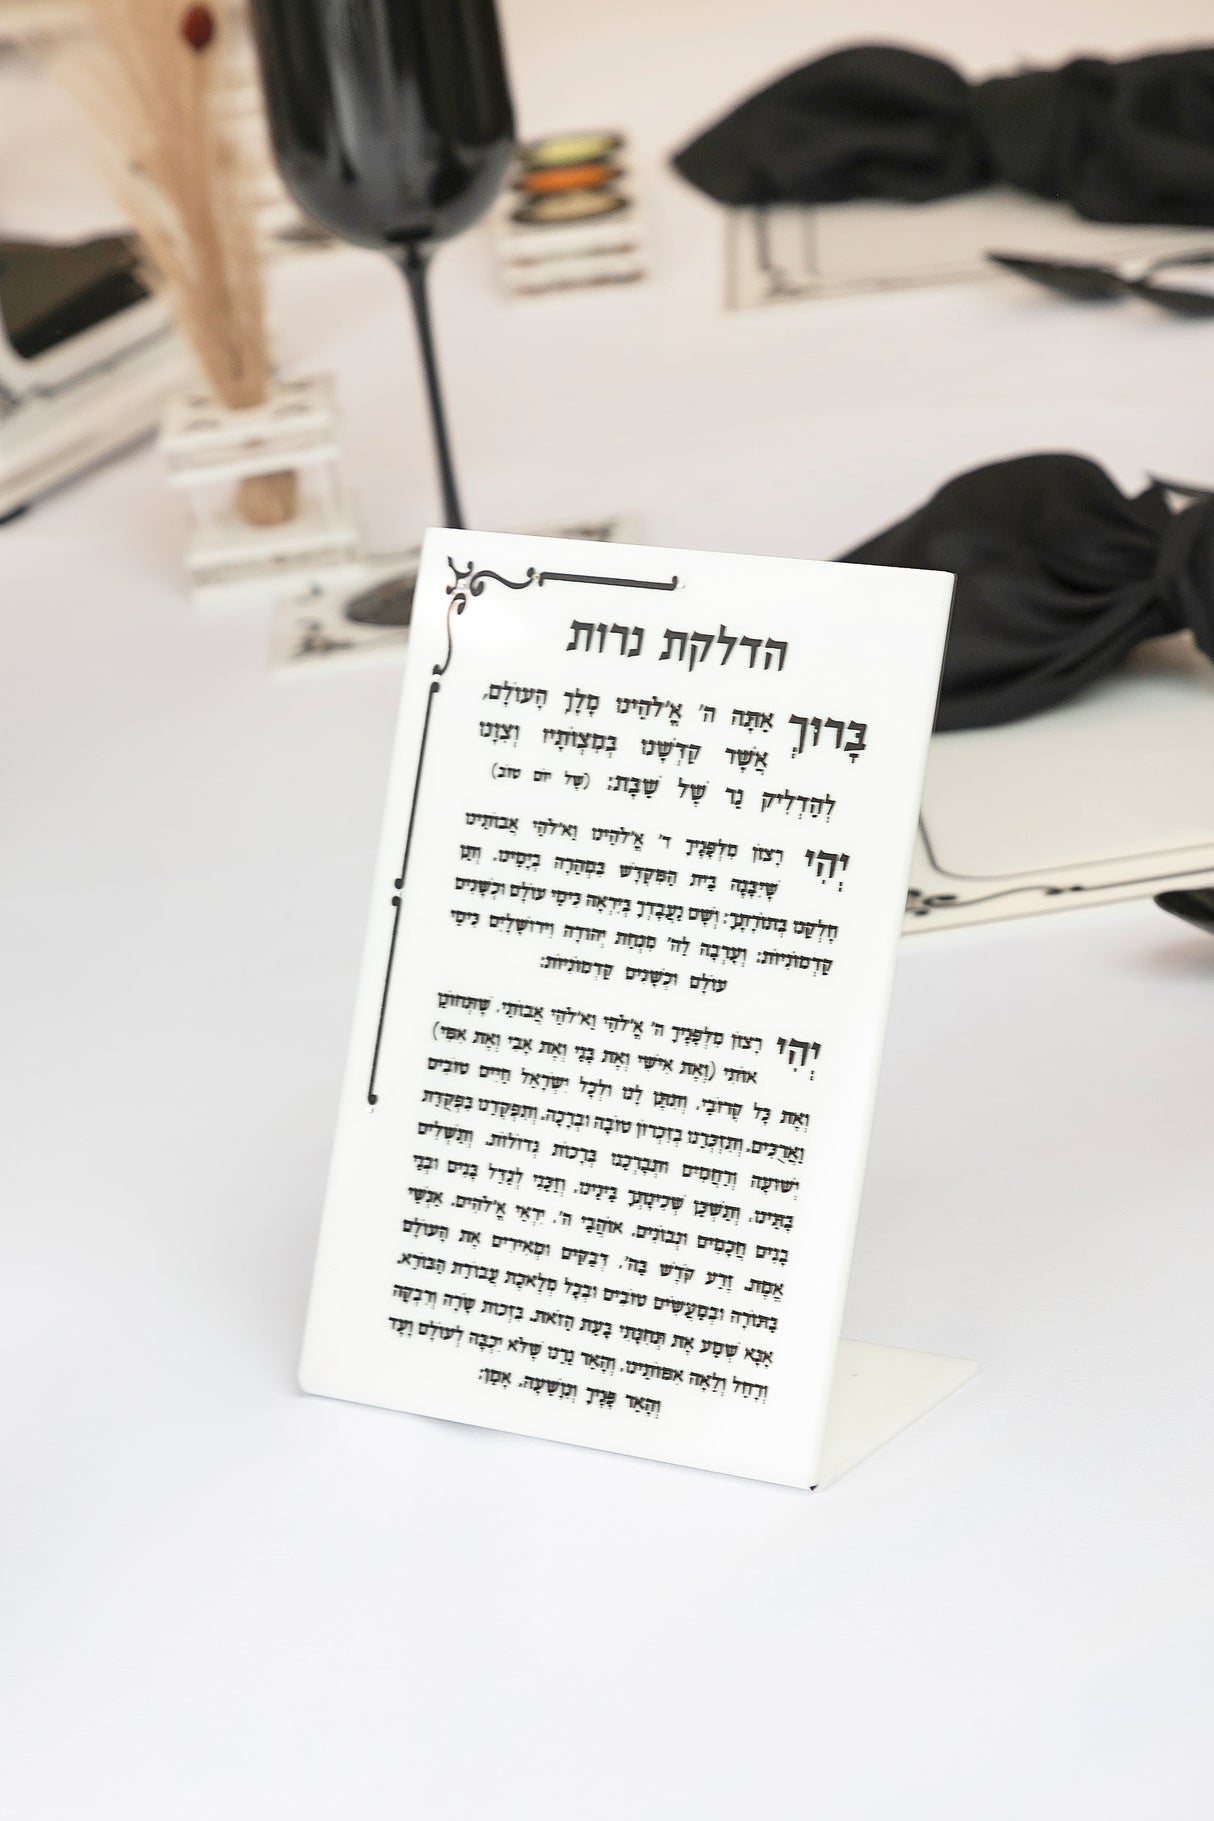 הדלקת נרות
בָּרוּךְ אַתָּה ה' אֱ'לֹהֵינוּ מֶלֶךְ הָעוֹלָם,
אֲשֶׁר קִדְּשָׁנוּ בְּמִצְוֹתָיו וְצִוָּנוּ
לְהַדְלִיק נֵר שֶׁל שַׁבָּת: (שֶׁל יוֹם טוֹב)
יְהִי רָצוֹן מִלְּפָנֶיךָ ד' אֱ'לֹהֵינוּ וֵא'לֹהֵי אֲבוֹתֵינוּ
שֶׁיִּבָּנֶה בֵּית הַמִּקְדָּשׁ בִּמְהֵרָה בְיָמֵינוּ, וְתֵן
חֶלְקֵנוּ בְּתוֹרָתֶךָ: וְשָׁם נַעֲבָדְךָ בְּיִרְאָה כִּימֵי עוֹלָם וּכְשָׁנִים
קַדְמוֹנִיּוֹת: וְעָרְבָה לַה' מִנְחַת יְהוּדָה וִירוּשָׁלָיִם כִּימֵי
עוֹלָם וּכְשָׁנִים קַדְמוֹנִיּוֹת:
יְהִי רָצוֹן מִלְּפָנֶיךָ ה' אֱ'לֹהַי וֵא'לֹהֵי אֲבוֹתַי, שֶׁתְּחוֹנֵן
אוֹתִי (וְאֶת אִישִׁי וְאֶת בָּנַי וְאֶת אָבִי וְאֶת אִמִּי)
וְאֶת כָּל קְרוֹבַי, וְתִתֵּן לָנוּ וּלְכָל יִשְׂרָאֵל חַיִּים טוֹבִים
וַאֲרֻכִּים, וְתִזְכְּרֵנוּ בְזִכְרוֹן טוֹבָה וּבְרָכָה, וְתִפְקְדֵנוּ בִּפְקֻדַּת
יְשׁוּעָה וְרַחֲמִים וּתְבָרְכֵנוּ בְּרָכוֹת גְּדוֹלוֹת, וְתַשְׁלִים
בָּתֵּינוּ, וְתַשְׁכֵּן שְׁכִינָתְךָ בֵּינֵינוּ, וְזַכֵּנִי לְגַדֵּל בָּנִים וּבְנֵי
בָנִים חֲכָמִים וּנְבוֹנִים, אוֹהֲבֵי ה', יִרְאֵי אֱ'לֹהִים, אַנְשֵׁי
אֱמֶת, זֶרַע קֹדֶשׁ בַּה', דְּבֵקִים וּמְאִירִים אֶת הָעוֹלָם
בַּתּוֹרָה וּבְמַעֲשִׂים טוֹבִים וּבְכָל מְלֶאכֶת עֲבוֹדַת הַבּוֹרֵא,
אָנָּא שְׁמַע אֶת תְּחִנָּתִי בָּעֵת הַזֹּאת, בִּזְכוּת שָׂרָה וְרִבְקָה
וְרָחֵל וְלֵאָה אִמּוֹתֵינוּ, וְהָאֵר נֵרֵנוּ שֶׁלֹּא יִכְבֶּה לְעוֹלָם וָעֶד
וְהָאֵר פָּנֶיךָ וְנִוָּשֵׁעָה, אָמֵן: